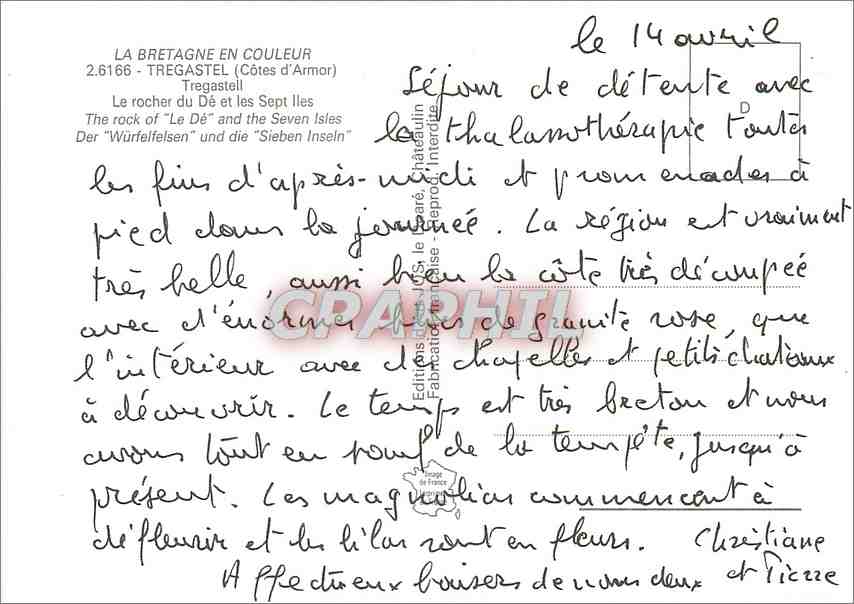 LA BRETAGNE EN COULEUR
2.6166 - TREGASTEL (Côtes d'Armor)
Tregastell
Le rocher du Dé et les Sept Iles
The rock of "Le Dé" and the Seven Isles
Der "Würfelfelsen" und die "Sieben Inseln"
le 14 avril
Séjour de détente avec
la thalassothérapie toutes
les fins d'après-midi et promenades à
pied dans la journée. La région est vraiment
très belle, aussi bien la côte très découpée
avec d'énormes blocs de granite rose, que
l'intérieur avec des chapelles et petits châteaux
à découvrir. Le temps est très breton et nous
avons tout en pour de la tempête, jusqu'à
présent. Les magnolias commencent à
défleurir et les lilas sont en fleurs. Christiane
Affectueux baisers de nous deux et Pierre
D
Editions d'art JOS le Doaré, Châteaulin
Fabrication française - Reprod. Interdite
Image
de France
CPAPHIL